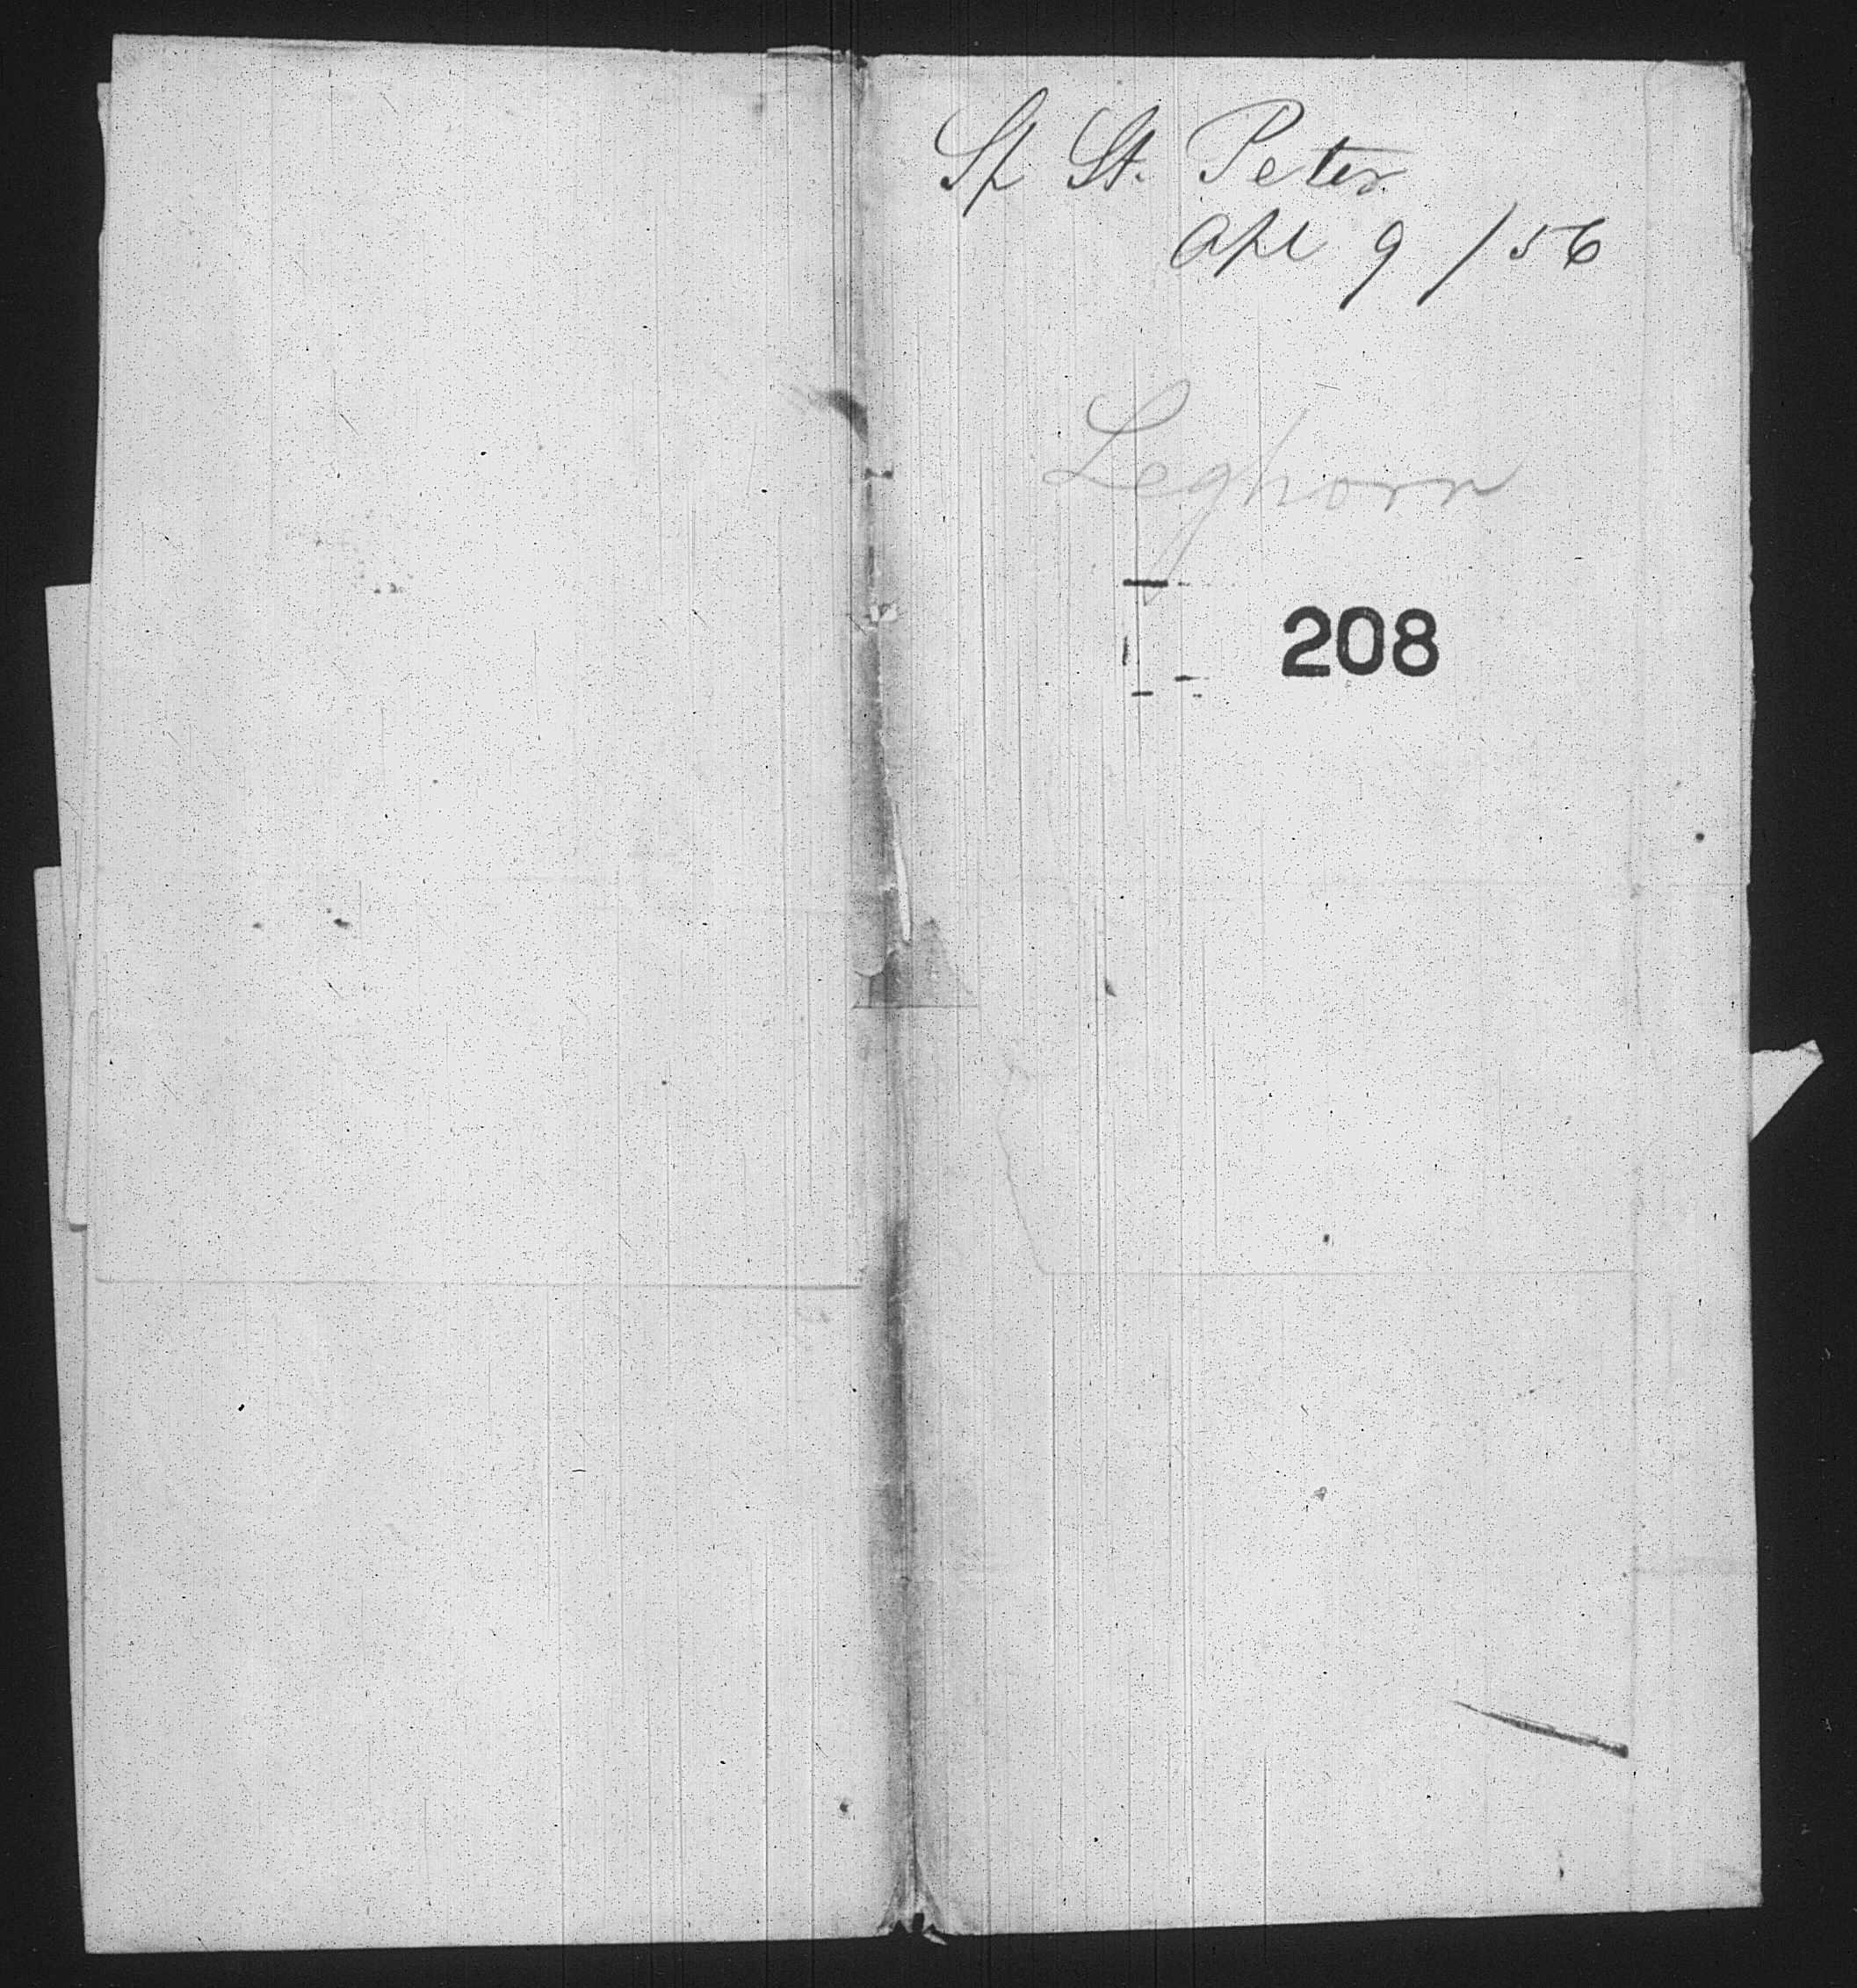 Sp St. Peter
Apl 9 /56
Leghorn
208